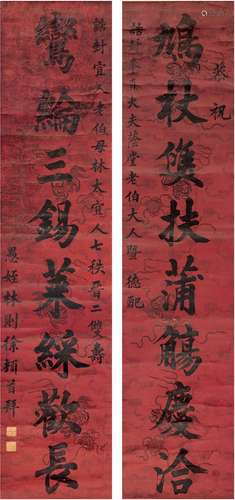 恭祝
鳩杖雙扶蒲觴慶洽
誥封大夫堂老伯大人暨 德配
誥封宜人老伯母林太宜人七秩晉二雙壽
鸞綸三錫萊綵歡長
愚姪林則徐頓首拜